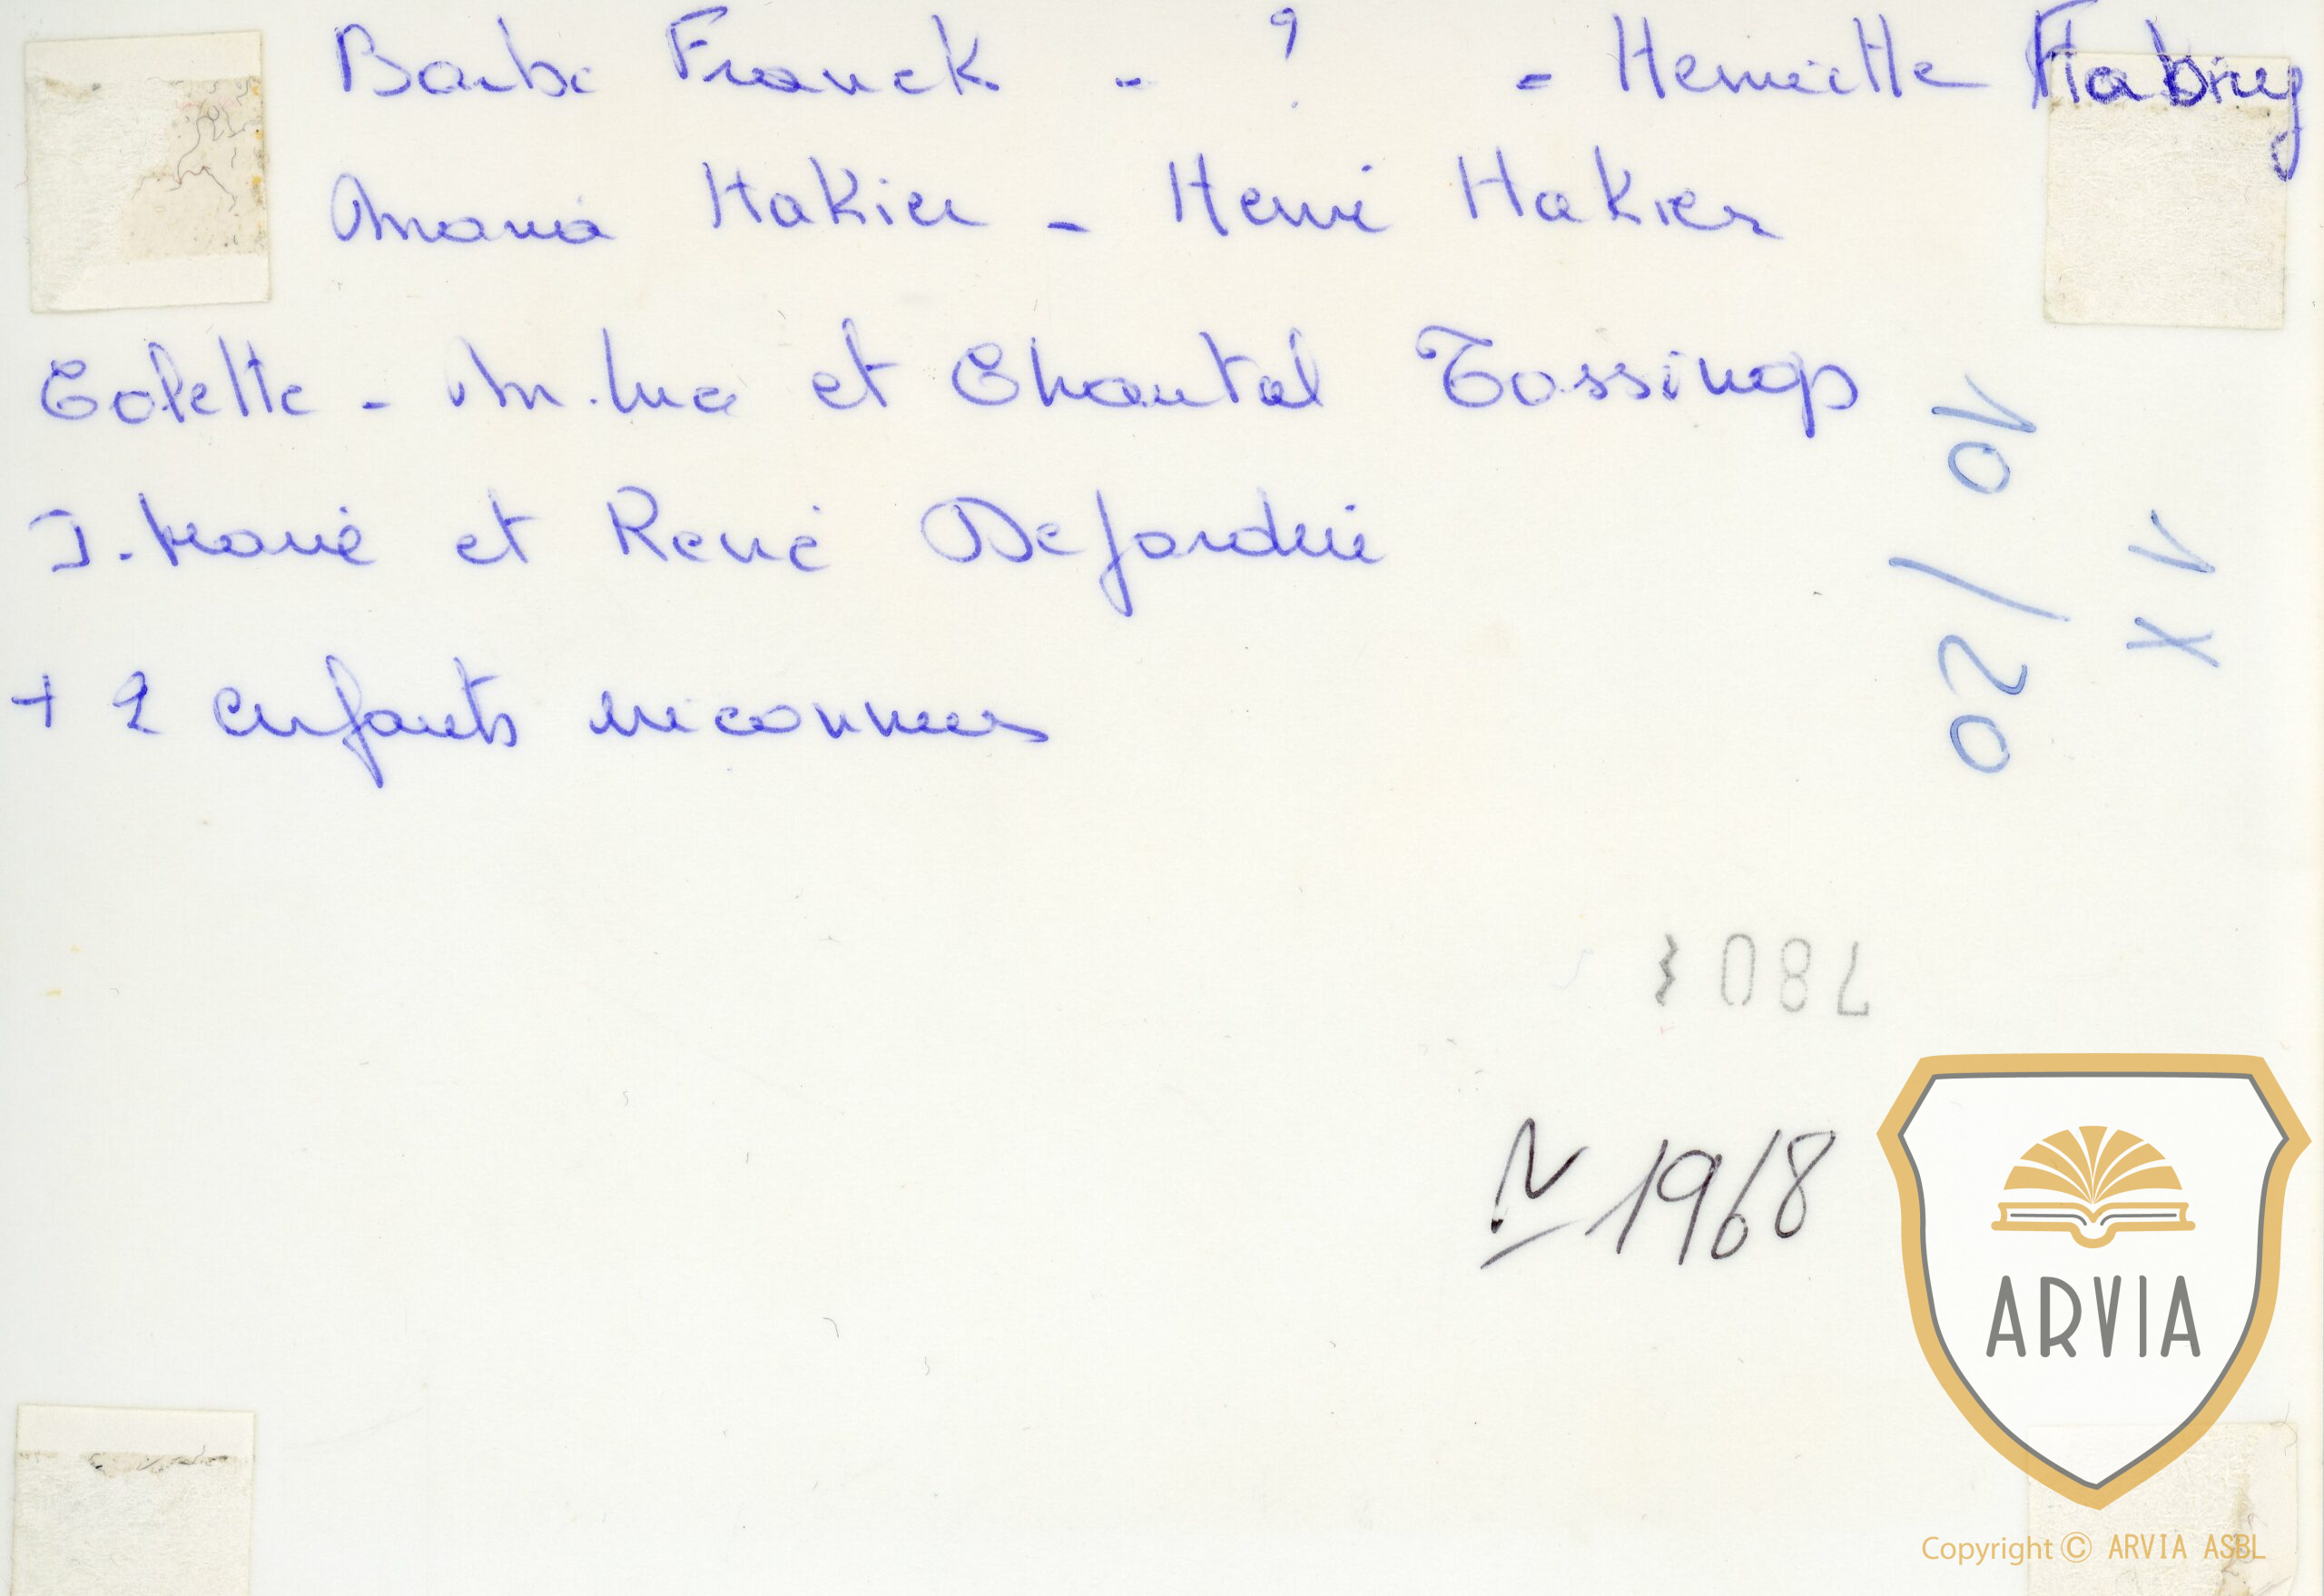 Barbe Franck - ? - Henriette Habruj
Maria Hakier - Henri Hakier
Colette - M. Luce et Chantal Tossings
J. Marie et René Dejardin
+ 2 enfants inconnus
10/20
1X
780
N 1968
ARVIA
Copyright © ARVIA ASBL